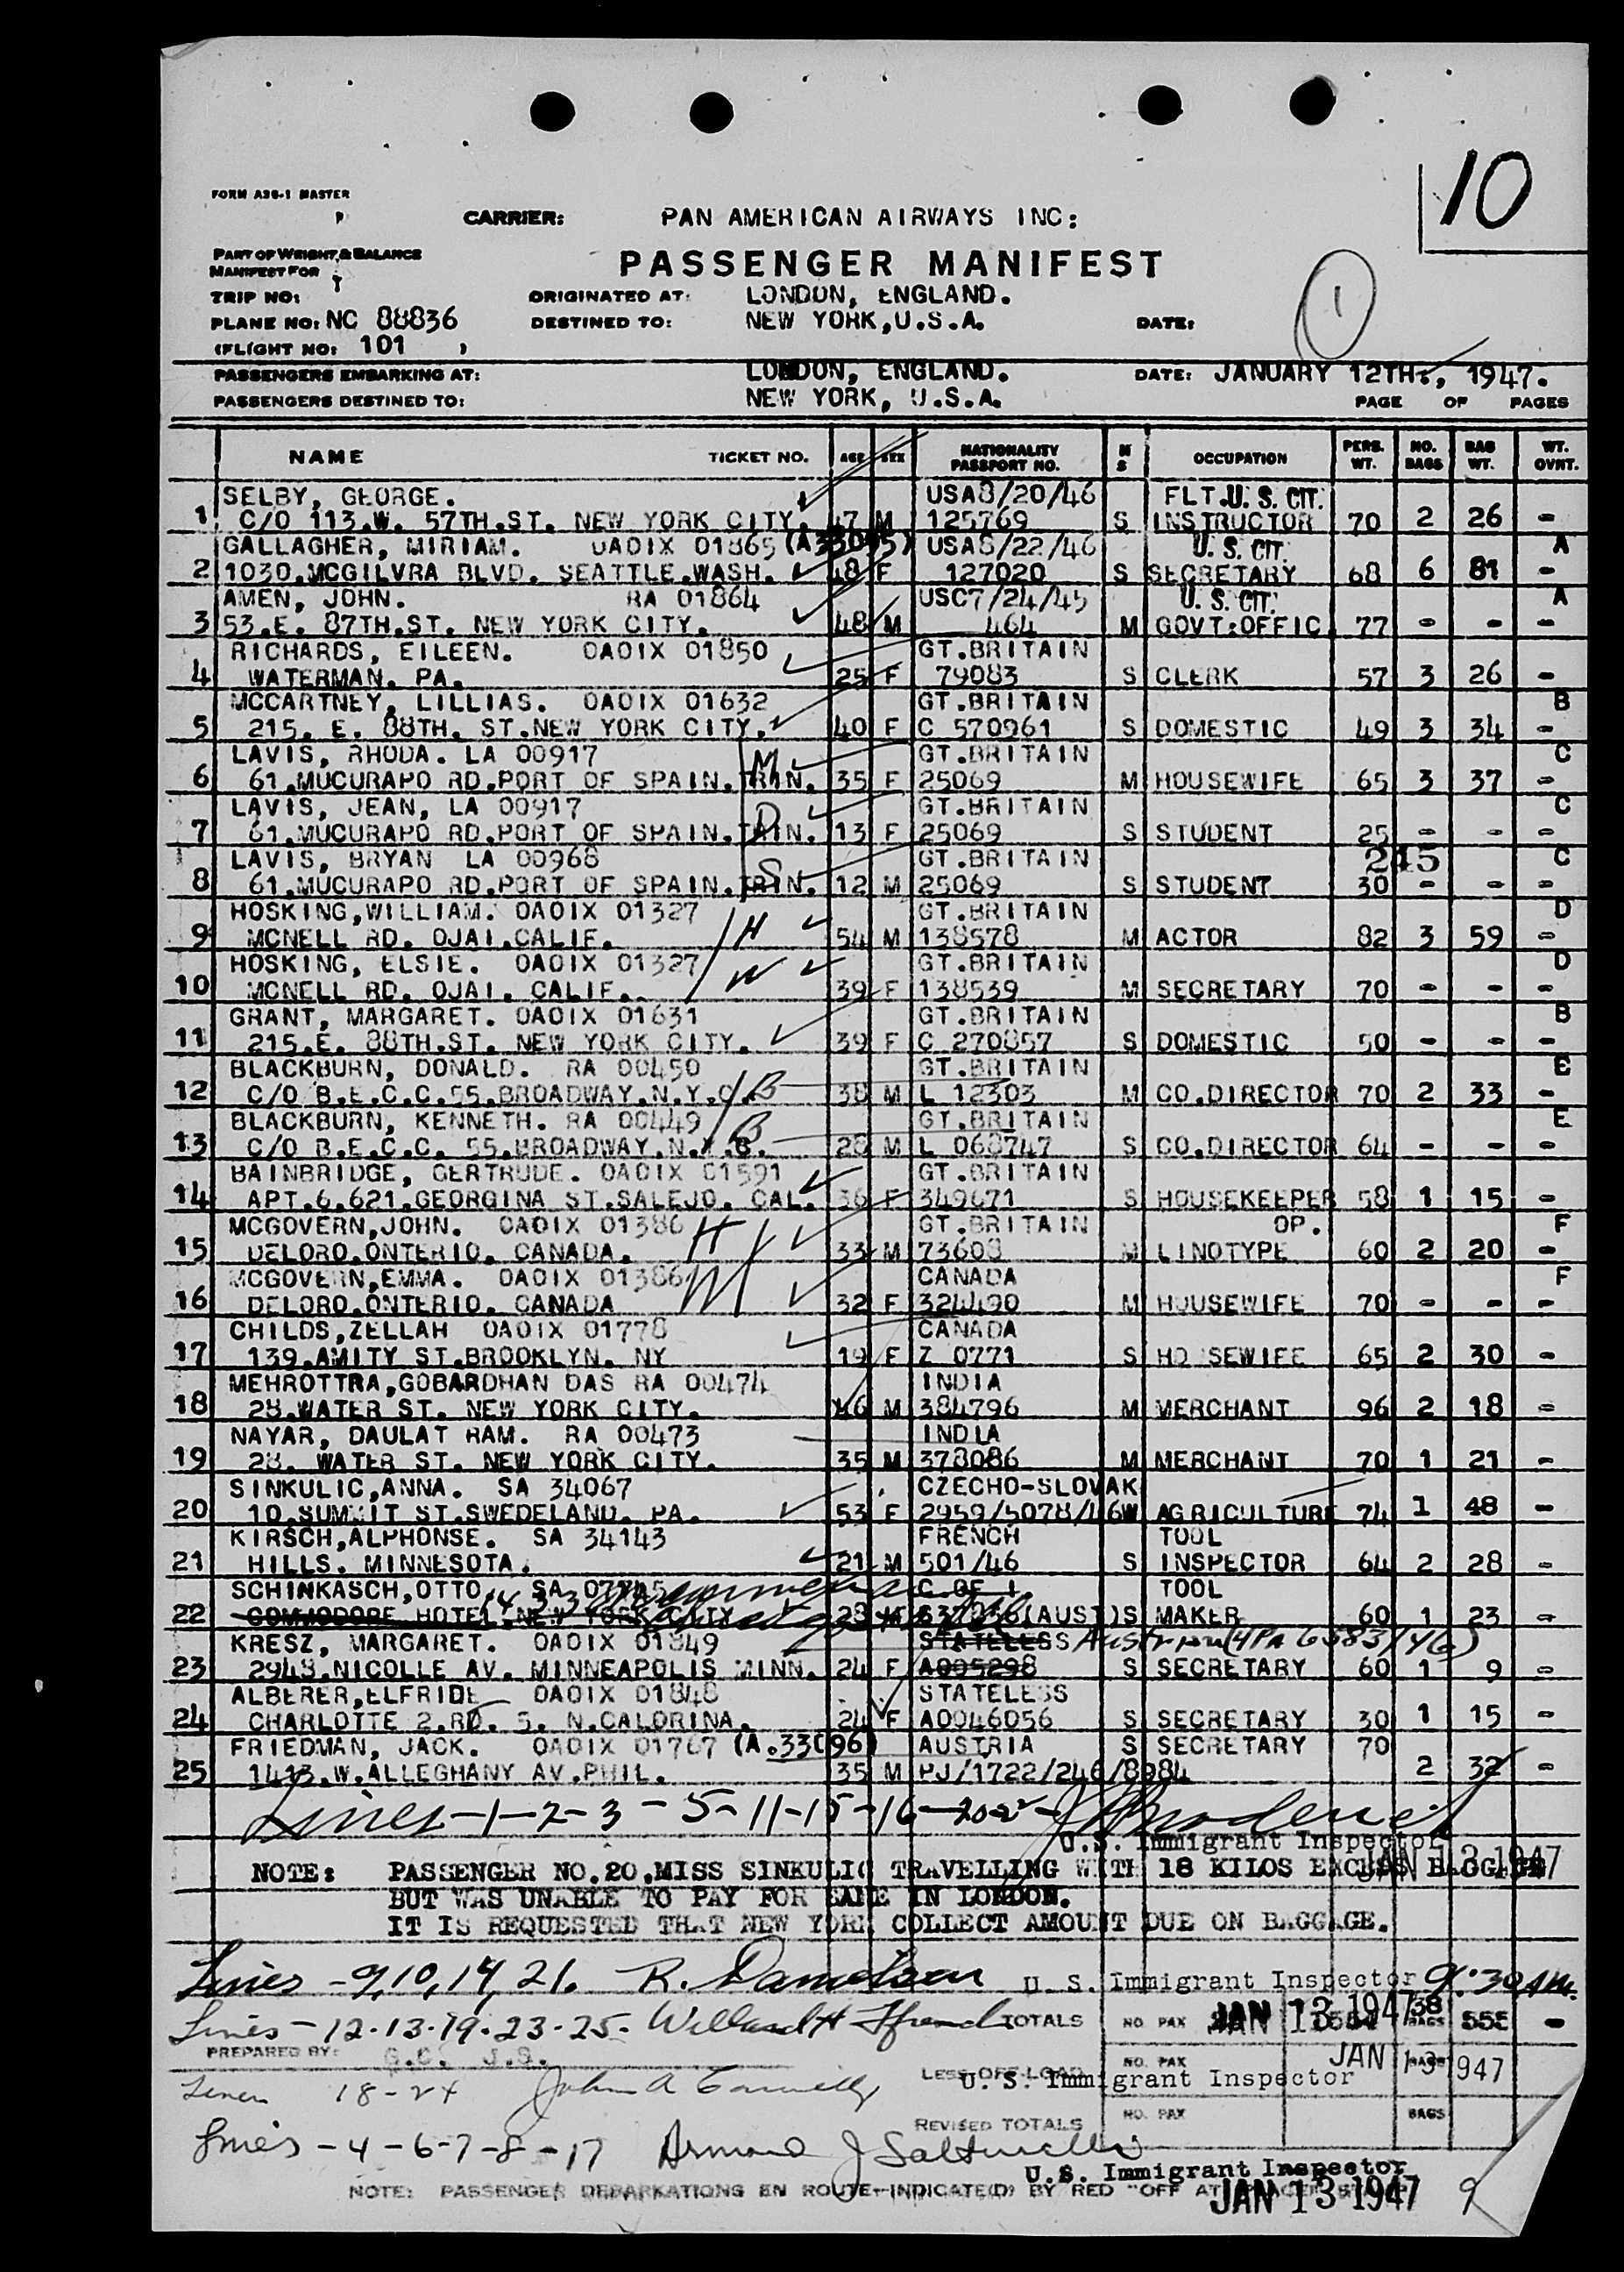 10
FORM A26-1 MASTER
CARRIER: PAN AMERICAN AIRWAYS INC:
PART OF WEIGHT & BALANCE
MANIFEST FOR
PASSENGER MANIFEST
1
TRIP NO: ORIGINATED AT: LONDON, ENGLAND.
PLANE NO: NC 88836 DESTINED TO: NEW YORK, U.S.A. DATE:
(FLIGHT NO: 101 )
PASSENGERS EMBARKING AT: LONDON, ENGLAND. DATE: JANUARY 12TH., 1947.
PASSENGERS DESTINED TO: NEW YORK, U.S.A. PAGE OF PAGES
NAME TICKET NO. AGE SEX NATIONALITY PASSPORT NO. M S OCCUPATION PERS. WT. NO. BAGS BAG WT. WT. OVNT.
SELBY, GEORGE. USA8/20/46 FLT. U. S. CIT.
1 C/O 113.W. 57TH.ST. NEW YORK CITY. 47 M 125769 S INSTRUCTOR 70 2 26 -
GALLAGHER, MIRIAM. OAOIX 01865 USA8/22/46 U. S. CIT. A
2 1030.MCGILVRA BLVD. SEATTLE.WASH. 48 F 127020 S SECRETARY 68 6 81 -
AMEN, JOHN. RA 01864 USC7/24/45 U. S. CIT. A
3 53.E. 87TH.ST. NEW YORK CITY. 48 M 464 M GOVT:OFFIC 77 - - -
RICHARDS, EILEEN. OAOIX 01850 GT.BRITAIN
4 WATERMAN. PA. 25 F 79083 S CLERK 57 3 26 -
MCCARTNEY, LILLIAS. OAOIX 01632 GT.BRITAIN B
5 215. E. 88TH. ST.NEW YORK CITY. 40 F C 570961 S DOMESTIC 49 3 34 -
LAVIS, RHODA. LA 00917 M GT.BRITAIN C
6 61.MUCURAPO RD.PORT OF SPAIN.TRIN. 35 F 25069 M HOUSEWIFE 65 3 37 -
LAVIS, JEAN, LA 00917 D GT.BRITAIN C
7 61.MUCURAPO RD.PORT OF SPAIN.TRIN. 13 F 25069 S STUDENT 25 - - -
LAVIS, BRYAN LA 00968 S GT.BRITAIN 245 C
8 61.MUCURAPO RD.PORT OF SPAIN.TRIN. 12 M 25069 S STUDENT 30 - - -
HOSKING,WILLIAM. OAOIX 01327 H GT.BRITAIN D
9 MCNELL RD. OJAI.CALIF. 54 M 138578 M ACTOR 82 3 59 -
HOSKING, ELSIE. OAOIX 01327 W GT.BRITAIN D
10 MCNELL RD. OJAI. CALIF. 39 F 138539 M SECRETARY 70 - - -
GRANT, MARGARET. OAOIX 01631 GT.BRITAIN B
11 215.E. 88TH.ST. NEW YORK CITY. 39 F C 270857 S DOMESTIC 50 - - -
BLACKBURN, DONALD. RA 00450 B GT.BRITAIN E
12 C/O B.E.C.C.55.BROADWAY.N.Y.C. 38 M L 12303 M CO.DIRECTOR 70 2 33 -
BLACKBURN, KENNETH. RA 00449 B GT.BRITAIN E
13 C/O B.E.C.C. 55.BROADWAY.N.Y. 28 M L 068747 S CO.DIRECTOR 64 - - -
BAINBRIDGE, GERTRUDE. OAOIX 01591 GT.BRITAIN
14 APT.6.621.GEORGINA ST.SALEJO. CAL. 36 F 349671 S HOUSEKEEPER 58 1 15 -
MCGOVERN,JOHN. OAOIX 01386 H GT.BRITAIN OP. F
15 DELORO.ONTERIO. CANADA. 33 M 73608 M LINOTYPE 60 2 20 -
MCGOVERN,EMMA. OAOIX 01386 W CANADA F
16 DELORO.ONTERIO. CANADA 32 F 324490 M HOUSEWIFE 70 - - -
CHILDS,ZELLAH OAOIX 01778 CANADA
17 139.AMITY ST.BROOKLYN. NY 19 F Z 0771 S HO SEWIFE 65 2 30 -
MEHROTTRA,GOBARDHAN DAS RA 00474 INDIA
18 28.WATER ST. NEW YORK CITY. 46 M 384796 M MERCHANT 96 2 18 -
NAYAR, DAULAT RAM. RA 00473 INDIA
19 28. WATER ST. NEW YORK CITY. 35 M 378086 M MERCHANT 70 1 21 -
SINKULIC,ANNA. SA 34067 CZECHO-SLOVAK
20 10.SUMMIT ST.SWEDELAND. PA. 53 F 2959/5078/46 W AGRICULTURE 74 1 48 -
KIRSCH,ALPHONSE. SA 34143 FRENCH TOOL
21 HILLS. MINNESOTA. 21 M 501/46 S INSPECTOR 64 2 28 -
SCHINKASCH,OTTO. SA C OF I. TOOL
22 COMMODORE HOTEL.NEW YORK CITY 28 (AUST) S MAKER 60 1 23 -
KRESZ, MARGARET. OAOIX 01849 STATELESS Austrian (4PA 6583/46)
23 2948.NICOLLE AV. MINNEAPOLIS MINN. 24 F A005298 S SECRETARY 60 1 9 -
ALBERER,ELFRIDE OAOIX 01848 STATELESS
24 CHARLOTTE 2.RD. 5. N.CALORINA. 24 F A0046056 S SECRETARY 30 1 15 -
FRIEDMAN, JACK. OAOIX 01767 (A.33096) AUSTRIA S SECRETARY 70
25 1413.W.ALLEGHANY AV.PHIL. 35 M PJ/1722/246/8984 2 32 -
Lines -1-2-3-5-11-15-16-20-22-
U.S. Immigrant Inspector
JAN 13 1947
NOTE: PASSENGER NO.20.MISS SINKULIC TRAVELLING WITH 18 KILOS EXCESS BAGGAGE
BUT WAS UNABLE TO PAY FOR SAME IN LONDON.
IT IS REQUESTED THAT NEW YORK COLLECT AMOUNT DUE ON BAGGAGE.
Lines - 9,10,14,21. R. Danielson U. S. Immigrant Inspector 9:30 AM.
Lines - 12-13-19-23-25- Willard H TOTALS NO PAX JAN 13 1947 38 BAGS 555 -
PREPARED BY: G.C. J.S.
LESS OFF-LOAD NO. PAX JAN 13 1947 BAGS
U. S. Immigrant Inspector
Lines 18-24 John A Connelly
REVISED TOTALS NO. PAX BAGS
Lines - 4-6-7-8-17 Armand J
U.S. Immigrant Inspector
NOTE: PASSENGER DEBARKATIONS EN ROUTE INDICATE(D) BY RED "OFF AT
JAN 13 1947 9